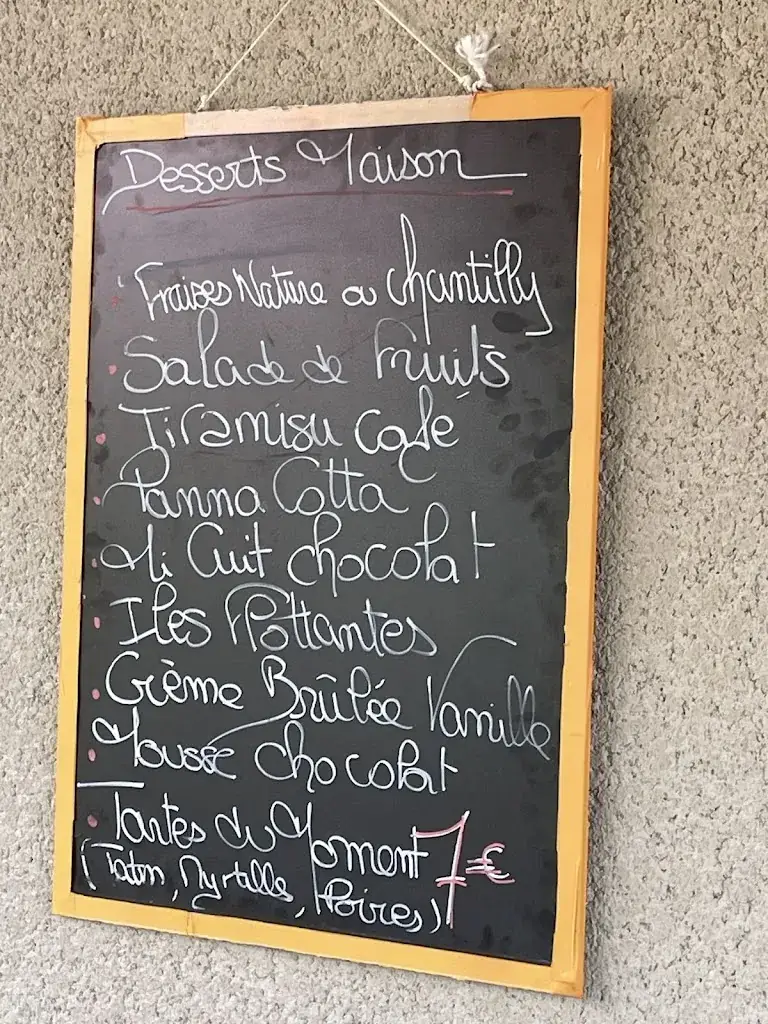 Desserts Maison
Fraises Nature ou Chantilly
Salade de Fruits
Tiramisu Café
Panna Cotta
Mi Cuit chocolat
Iles Flottantes
Crème Brûlée Vanille
Mousse chocolat
Tartes du Moment 7€
(Tatin, Myrtille, Poires)